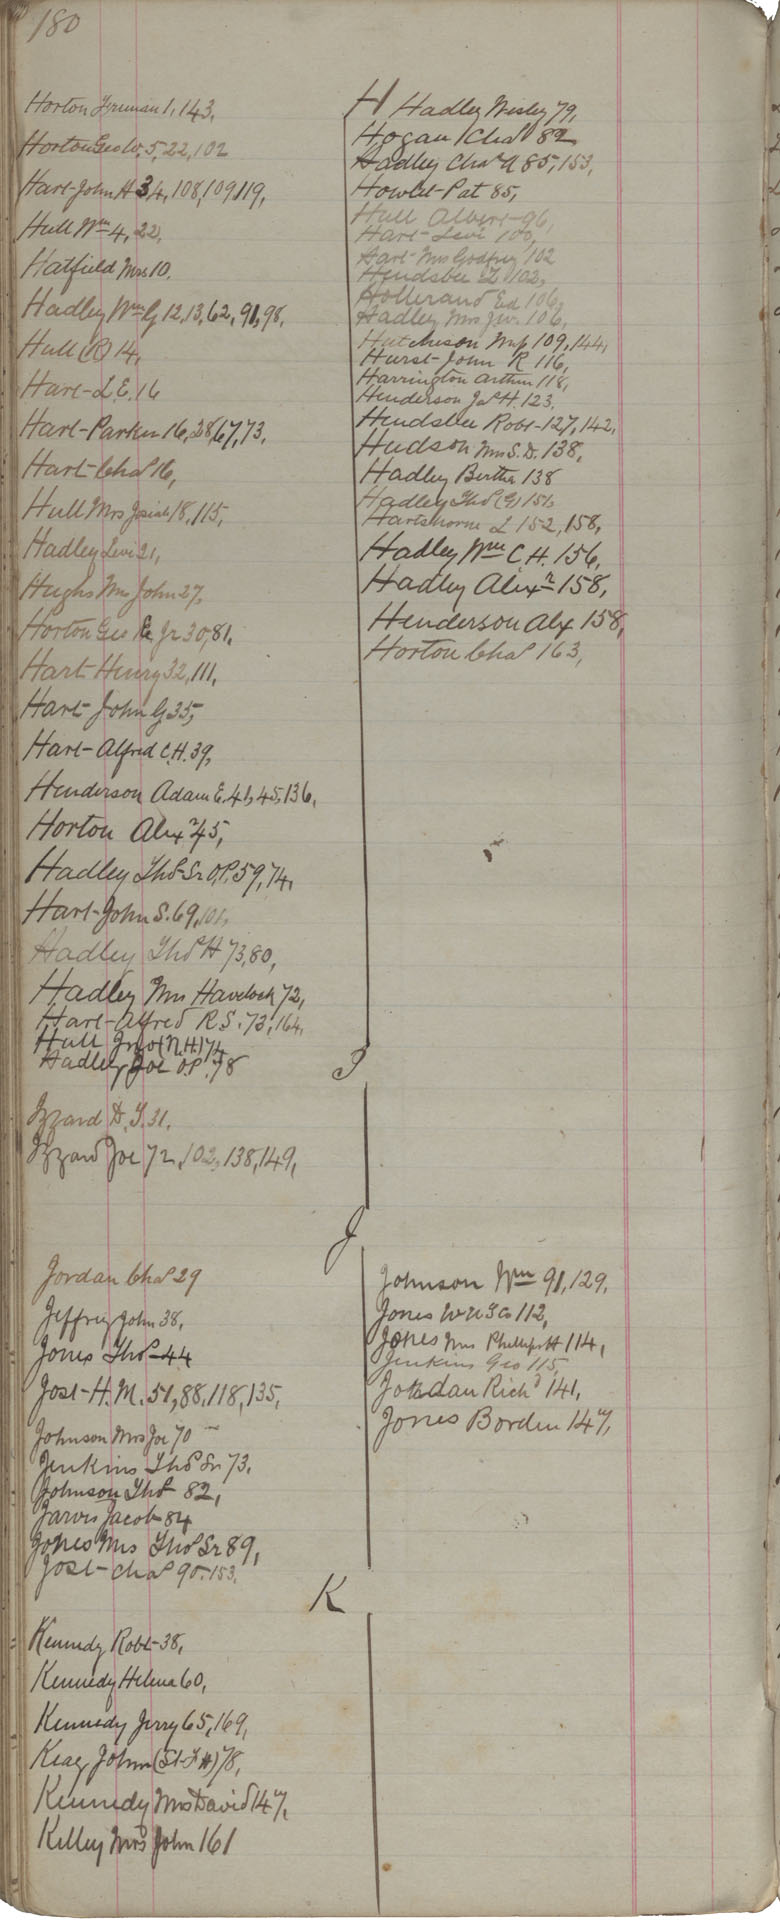 180
H
Horton Freeman 1, 143,
Horton Geo W. 5, 22, 102
Hart John H 34, 108, 109, 119,
Hull Wm 4, 22,
Hatfield Mrs 10.
Hadley Wm G 12, 13, 62, 91, 98,
Hull (R) 14,
Hart L E. 16
Hart Parker 16, 28, 67, 73,
Hart Chas 16,
Hull Mrs Josiah 18, 115,
Hadley Levi 21,
Hughs Mrs John 27,
Horton Geo Jr 30, 81,
Hart Henry 32, 111,
Hart John G 35,
Hart Alfred C. H. 39,
Henderson Adam E. 41, 45, 136,
Horton Alexr 45,
Hadley Thos Sr O.P. 59, 74,
Hart John S. 69, 101,
Hadley Thos H 73, 80,
Hadley Mrs Havelock 72,
Hart Alfred R S. 73, 164,
Hull Jno (N.H.) 74
Hadley Joe O.P. 78
Hadley Wesley 79,
Hogan Chas 82
Hadley Chas A 85, 153,
Howlet Pat 85,
Hull Albert 96,
Hart Levi 100,
Hart Mrs Godfrey 102
Hendsbee 102,
Hollerand Ed 106,
Hadley Mrs Jw. 106,
Hutcheson 109, 144,
Hurst John R 116,
Harrington Arthur 118,
Henderson Jas H. 123,
Hendsbee Robt 127, 142,
Hudson Mrs S. D. 138,
Hadley Bertha 138
Hadley Thos (G) 151,
Hartshorne L 152, 158,
Hadley Wm C H. 156,
Hadley Alexr 158,
Henderson Alex 158,
Horton Chas 163,
I
Izzard D. Y. 31.
Izzard Joe 72, 102, 138, 149,
J
Jordan Chas 29
Jeffrey John 38,
Jones Thos 44
Jost H. M. 51, 88, 118, 135,
Johnson Mrs Joe 70
Jenkins Thos Sr 73,
Johnson Thos 82,
Jarvis Jacob 84
Jones Mrs Thos Sr 89,
Jost Chas 90, 153,
Johnson Wm 91, 129,
Jones W H & Co 112,
Jones Mrs Phillip H 114,
Jenkins Geo 115,
Jordan Richd 141,
Jones Borden 147,
K
Kennedy Robt 38,
Kennedy Helena 60,
Kennedy Jerry 65, 169,
Keay John (St F H) 78,
Kennedy Mrs David 147,
Kelley Mrs John 161